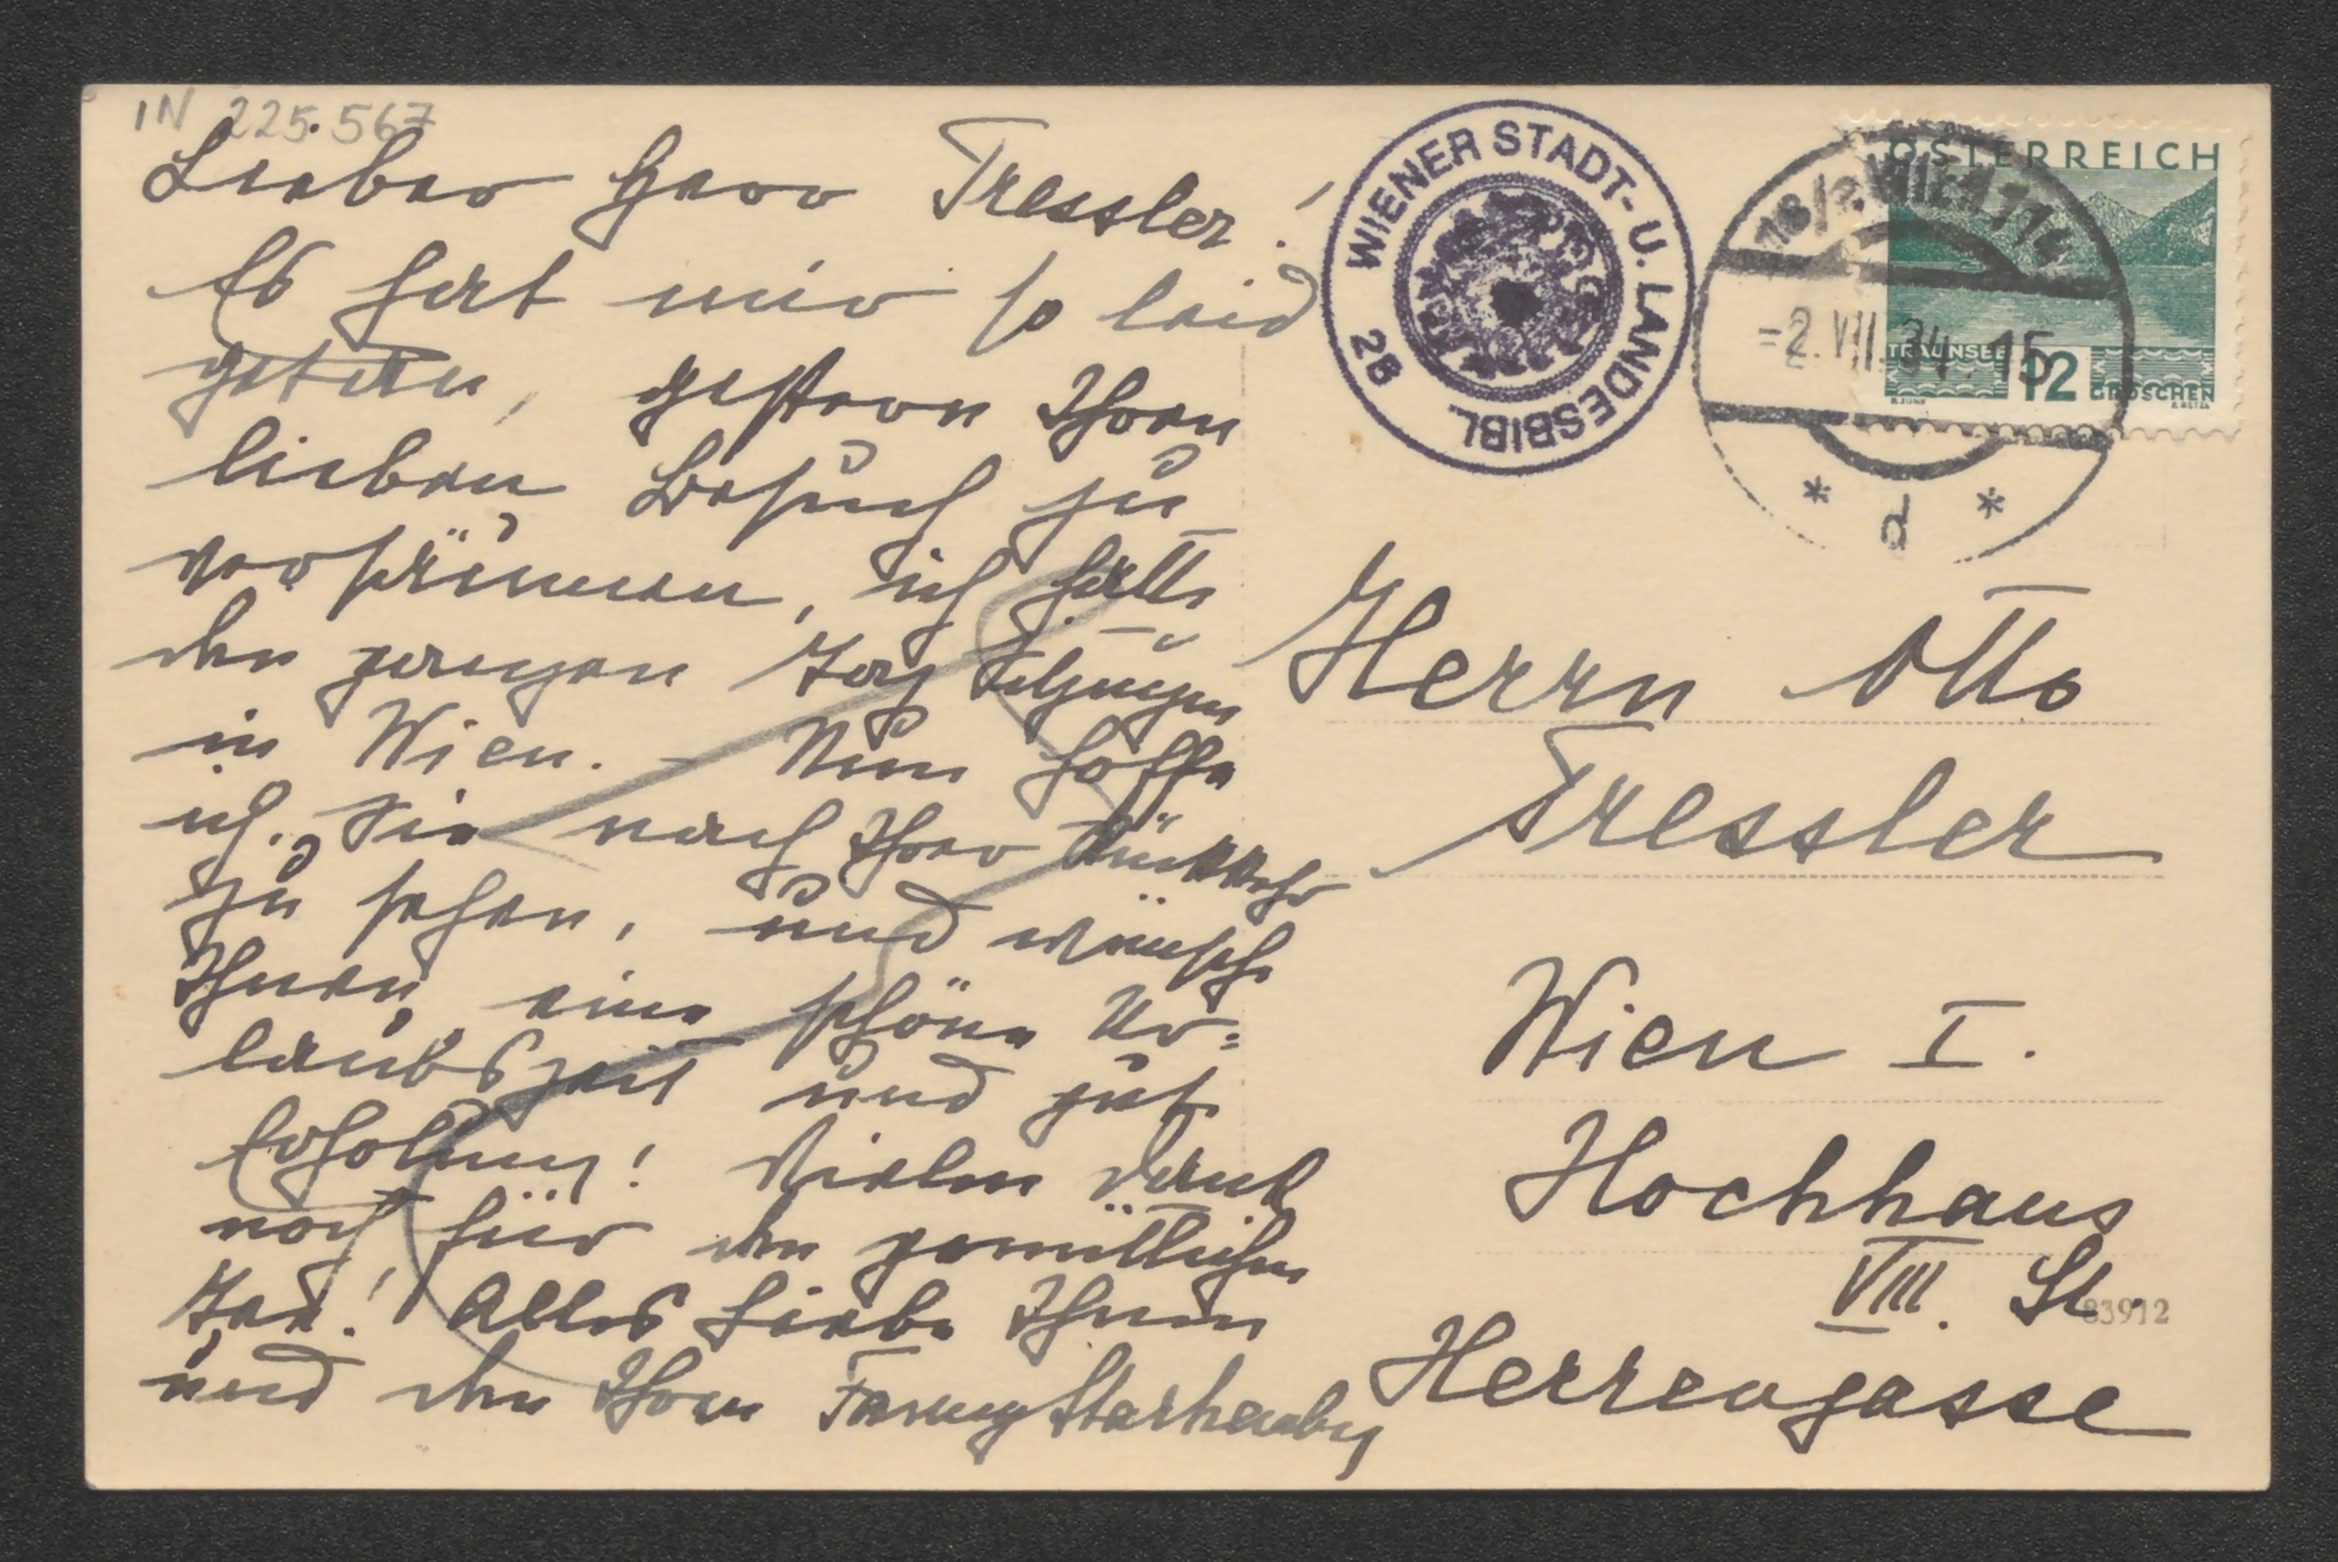 IN 225.567
Lieber Herr Tressler!
Es hat mir so leid
getan, gestern Ihren
lieben Besuch zu
versäumen, ich hatte
den ganzen Tag Sitzungen
in Wien. – Nun hoffe
ich, Sie nach Ihrer Rückkehr
zu sehen, und wünsche
Ihnen eine schöne Ur=
laubszeit und gute
Erholung! Vielen Dank
noch für den gemütlichen
Tee! Alles Liebe Ihnen
und den Ihren Fanny Starhemberg
WIENER STADT- U. LANDESBIBL.
28
ÖSTERREICH
TRAUNSEE 12 GROSCHEN
WIEN 114
-2.VIII.34.15
* d *
Herrn Otto
Tressler
Wien I.
Hochhaus
VIII. St.
83912
Herrengasse